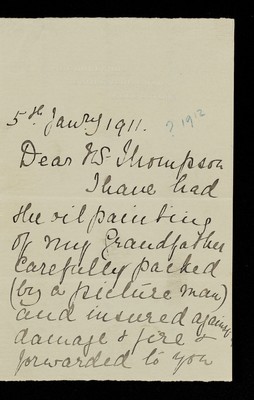 5th Jany 1911.
? 1912
Dear Mr Thompson
I have had
the oil painting
of my Grandfather
carefully packed
(by a picture man)
and insured against
damage & fire &
forwarded to you